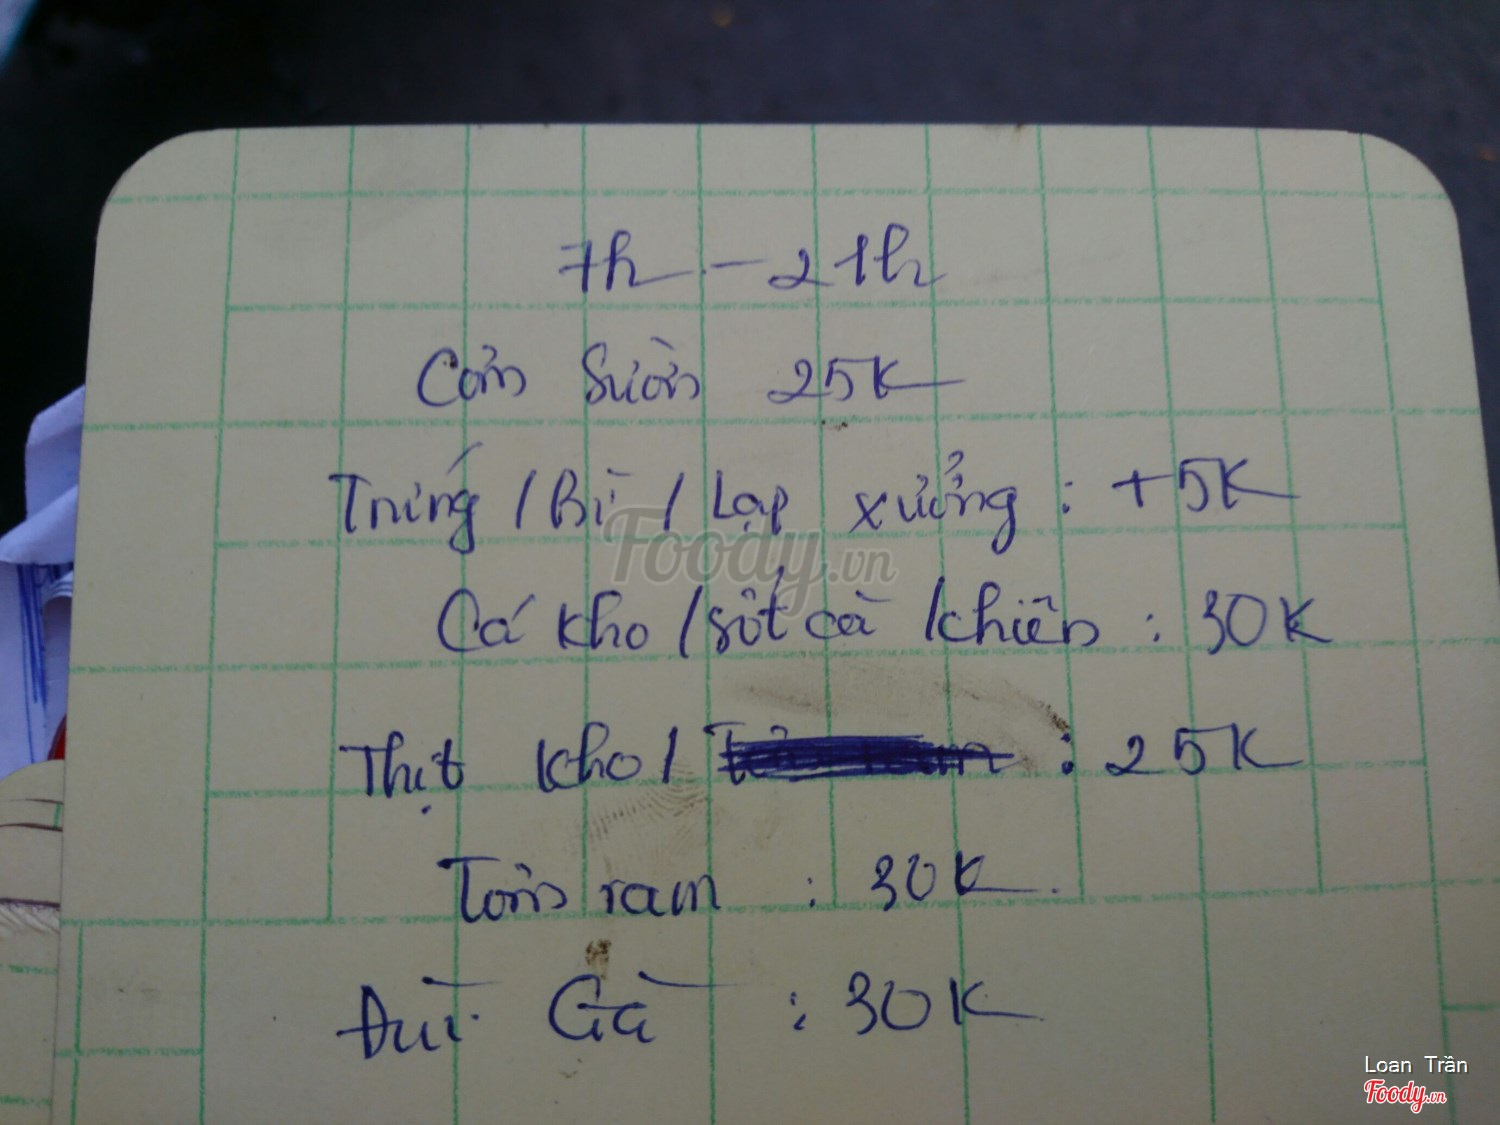 7h - 21h
Cơm Sườn 25K
Trứng / Bì / Lạp xưởng : +5K
Foody.vn
Cá kho / sốt cà / chiên : 30K
Thịt kho / : 25K
Tôm ram : 30K.
Đùi Gà : 30K
Loan Trần
Foody.vn